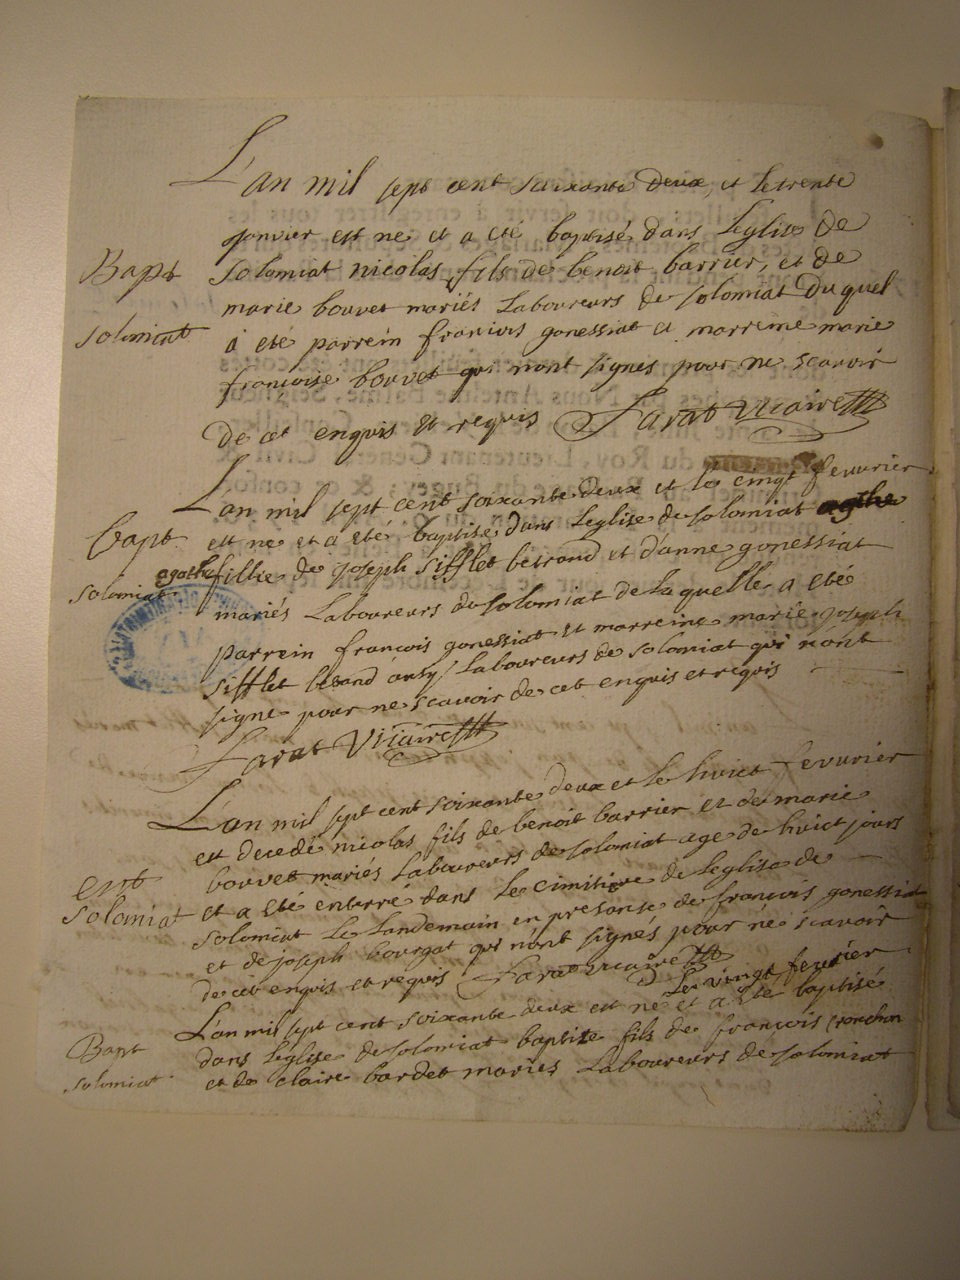 L'an mil sept cent soixante deux, et le trente
janvier est ne et a eté baptisé dans Leglise de
Bapt
solomiat nicolas fils de benoit barrier, et de
marie bouvet mariés Laboureurs de solomiat Duquel
solomiat
a eté parrein francois gonessiat et marreine marie
francoise bouvet qui nont signes pour ne scavoir
de cet enquis et requis Farat Vicaire
L'an mil sept cent soixante deux et le cingt fevurier
est ne et a eté baptisé dans Leglise de solomiat agathe
Bapt
agathe
fillie de joseph sifflet besrand et d'anne gonessiat
solomiat
mariés Laboureurs de solomiat de laquelle a eté
parrein francois gonessiat et marreine marie joseph
sifflet besand Laboureurs de solomiat qui nont
signe pour ne scavoir de cet enquis et requis
Farat Vicaire
L'an mil sept cent soixante deux et le huict fevurier
est decedé nicolas fils de benoit barrier et de marie
bouvet mariés Laboureurs de solomiat age de huict jours
ent
solomiat
et a eté enterré dans Le cimitiere de Leglise de
solomiat Le Landemain en presanse de francois gonessiat
et de joseph bourgat qui n'ont signés pour ne scavoir
de cet enquis et requis Farat vicaire
Le vingt fevrier
L'an mil sept cent soixante deux est ne et a eté baptisé
Bapt
dans Leglise de solomiat baptiste fils de francois
solomiat
et de claire bardet mariés Laboureurs de solomiat